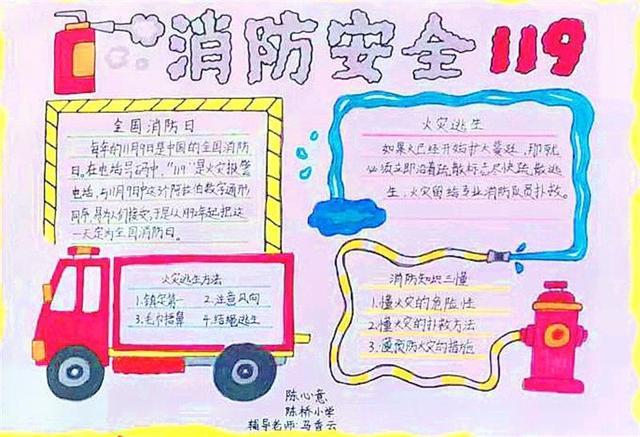 消防安全 119
全国消防日
每年的11月9日是中国的全国消防
日。在电话号码中，"119"是火灾报警
电话，与11月9日中这3个阿拉伯数字
同序，易为人们接受，于是从1992年起把这
一天定为全国消防日。
火灾逃生
如果火已经开始扩大蔓延，那就
必须立即沿着疏散标志尽快疏散逃
生，火灾留给专业消防队员扑救。
火灾逃生方法
1.镇定第一 2.注意风向
3.毛巾捂鼻 4.结绳逃生
消防知识三懂
1.懂火灾的危险性
2.懂火灾的扑救方法
3.懂预防火灾的措施
陈心意
陈桥小学
辅导老师:马香云